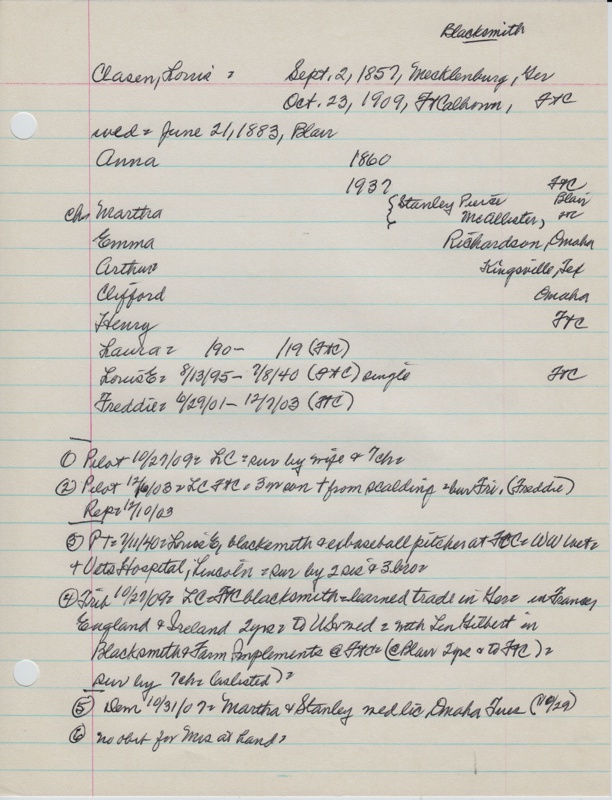 Blacksmith
Clasen, Louis = Sept. 2, 1857, Mecklenburg, Ger
Oct. 23, 1909, Ft Calhoun, FtC
wed = June 21, 1883, Blair
Anna 1860
1937 FtC
ch= Martha { Stanley Pierce Blair
McAllister,
Emma Richardson, Omaha
Arthur Kingsville, Tex
Clifford Omaha
Henry FtC
Laura = /90- /19 (FtC)
Louis E = 8/13/95 - 7/8/40 (FtC) single FtC
Freddie = 6/29/01 - 12/7/03 (FtC)
① Pilot 10/27/09 = LC = sur by wife & 7ch=
② Pilot 12/ /03 = LC FtC = 3 son † from scalding = bur Fri. (Freddie)
Rep = 12/10/03
③ PT = 7/11/40 = Louis E, blacksmith & exbaseball pitcher at FtC = WW vet =
† Vets Hospital, Lincoln = sur by 2 sis & 3 bro =
④ Trib 10/27/09 = LC = FtC blacksmith = learned trade in Ger = in France,
England & Ireland 2yrs = to US wed = with Len Gilbert in
Blacksmith & Farm Implements @ FtC = (@ Blair 2yrs & to FtC) =
sur by 7ch (as listed) =
⑤ Dem 10/31/07 = Martha & Stanley wed lic Omaha Tues (10/29)
⑥ no obit for Mrs at hand =